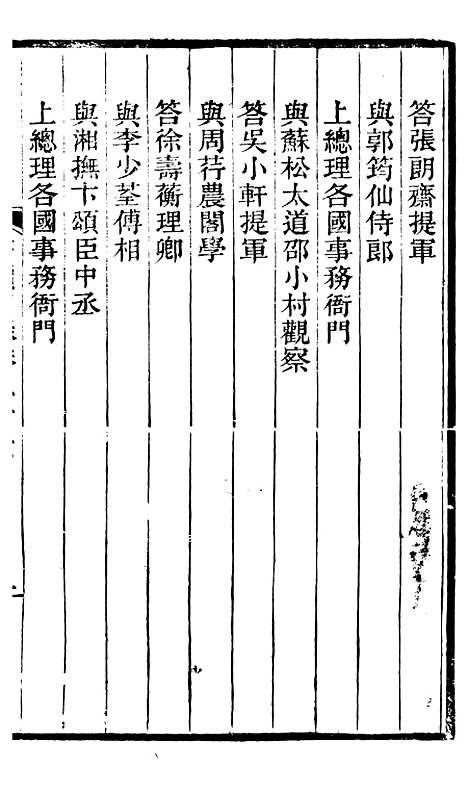 答張朗齋提軍
與郭筠仙侍郎
上總理各國事務衙門
與蘇松太道邵小村觀察
答吳小軒提軍
與周荇農閣學
答徐壽蘅理卿
與李少荃傅相
與湘撫卞頌臣中丞
上總理各國事務衙門